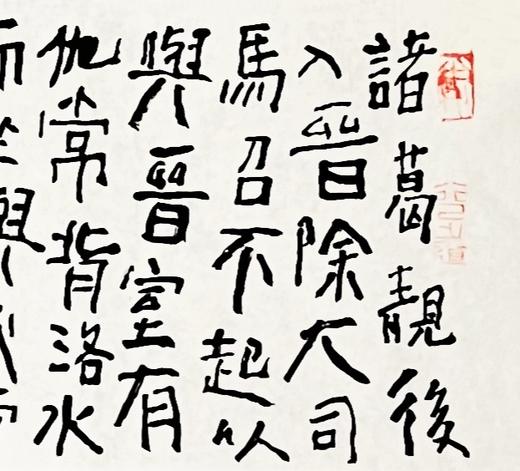 諸葛靚後
入晉除大司
馬召不起以
與晉室有
仇常背洛水